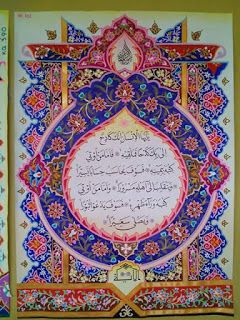 يٰٓأَيُّهَا الْإِنْسَانُ إِنَّكَ كَادِحٌ
إِلَىٰ رَبِّكَ كَدْحًا فَمُلَاقِيهِ فَأَمَّا مَنْ أُوتِيَ
كِتَابَهُ بِيَمِينِهِ فَسَوْفَ يُحَاسَبُ حِسَابًا يَسِيرًا
وَيَنْقَلِبُ إِلَىٰ أَهْلِهِ مَسْرُورًا وَأَمَّا مَنْ أُوتِيَ
كِتَابَهُ وَرَاءَ ظَهْرِهِ فَسَوْفَ يَدْعُو ثُبُورًا
وَيَصْلَىٰ سَعِيرًا